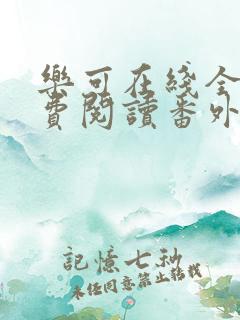 樂可在綫全
費閱讀番外
記憶七秒
未经同意禁止转载